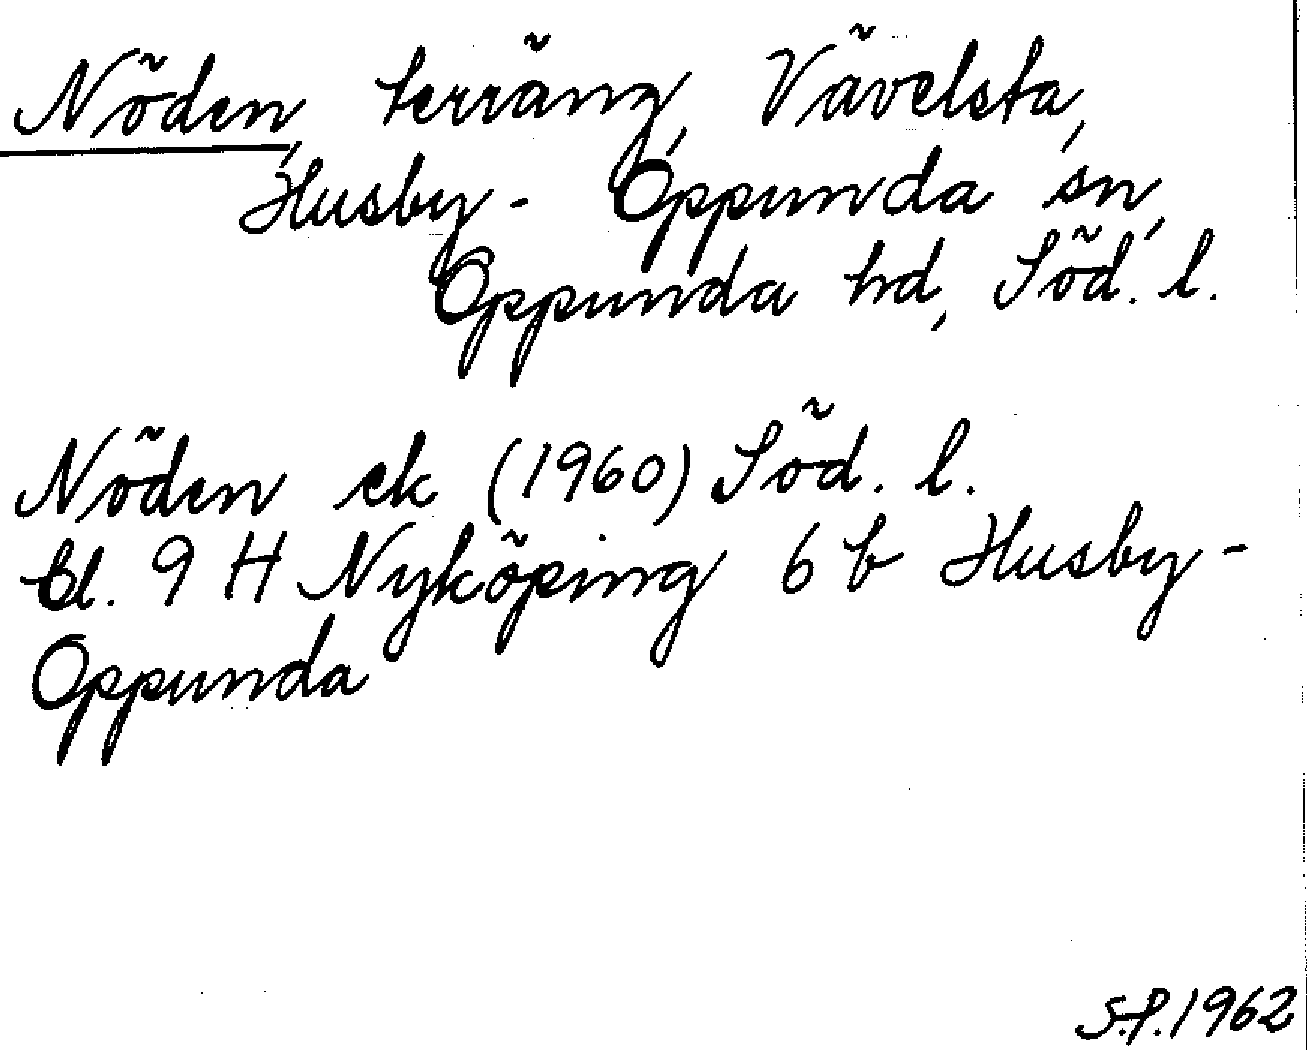 Nöden, terräng, Vävelsta,
Husby- Oppunda sn,
Oppunda hd, Söd. l.
Nöden ek (1960) Söd. l.
bl. 9 H Nyköping 6 b Husby-
Oppunda
S.P. 1962